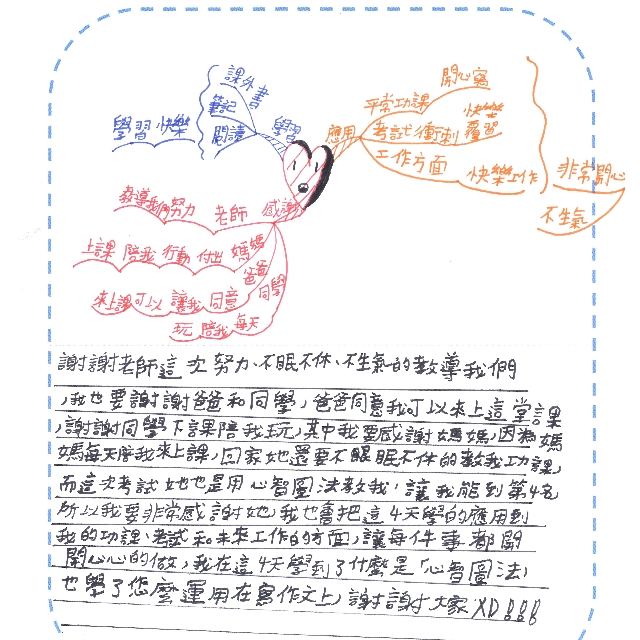 課外書
筆記
閱讀
學習 快樂
學習
應用
開心寫
平常功課
考試 衝刺
快樂
複習
工作方面
快樂工作
非常開心
不生氣
感謝
老師
教導我們努力
媽媽
付出
行動
陪我
上課
爸爸
同意
讓我
可以
來上課
同學
每天
陪我
玩
謝謝老師這次努力、不眠不休、不生氣的教導我們
,我也要謝謝爸爸和同學,爸爸同意我可以來上這堂課
,謝謝同學下課陪我玩,其中我要感謝媽媽,因為媽
媽每天陪我來上課,回家她還要不眠不休的教我功課,
而這次考試她也是用心智圖法教我,讓我能到第4名
所以我要非常感謝她,我也會把這4天學的應用到
我的功課、考試和未來工作的方面,讓每件事都開
開心心的做,我在這4天學到了什麼是「心智圖法」
也學了怎麼運用在寫作文上,謝謝大家XD!!!